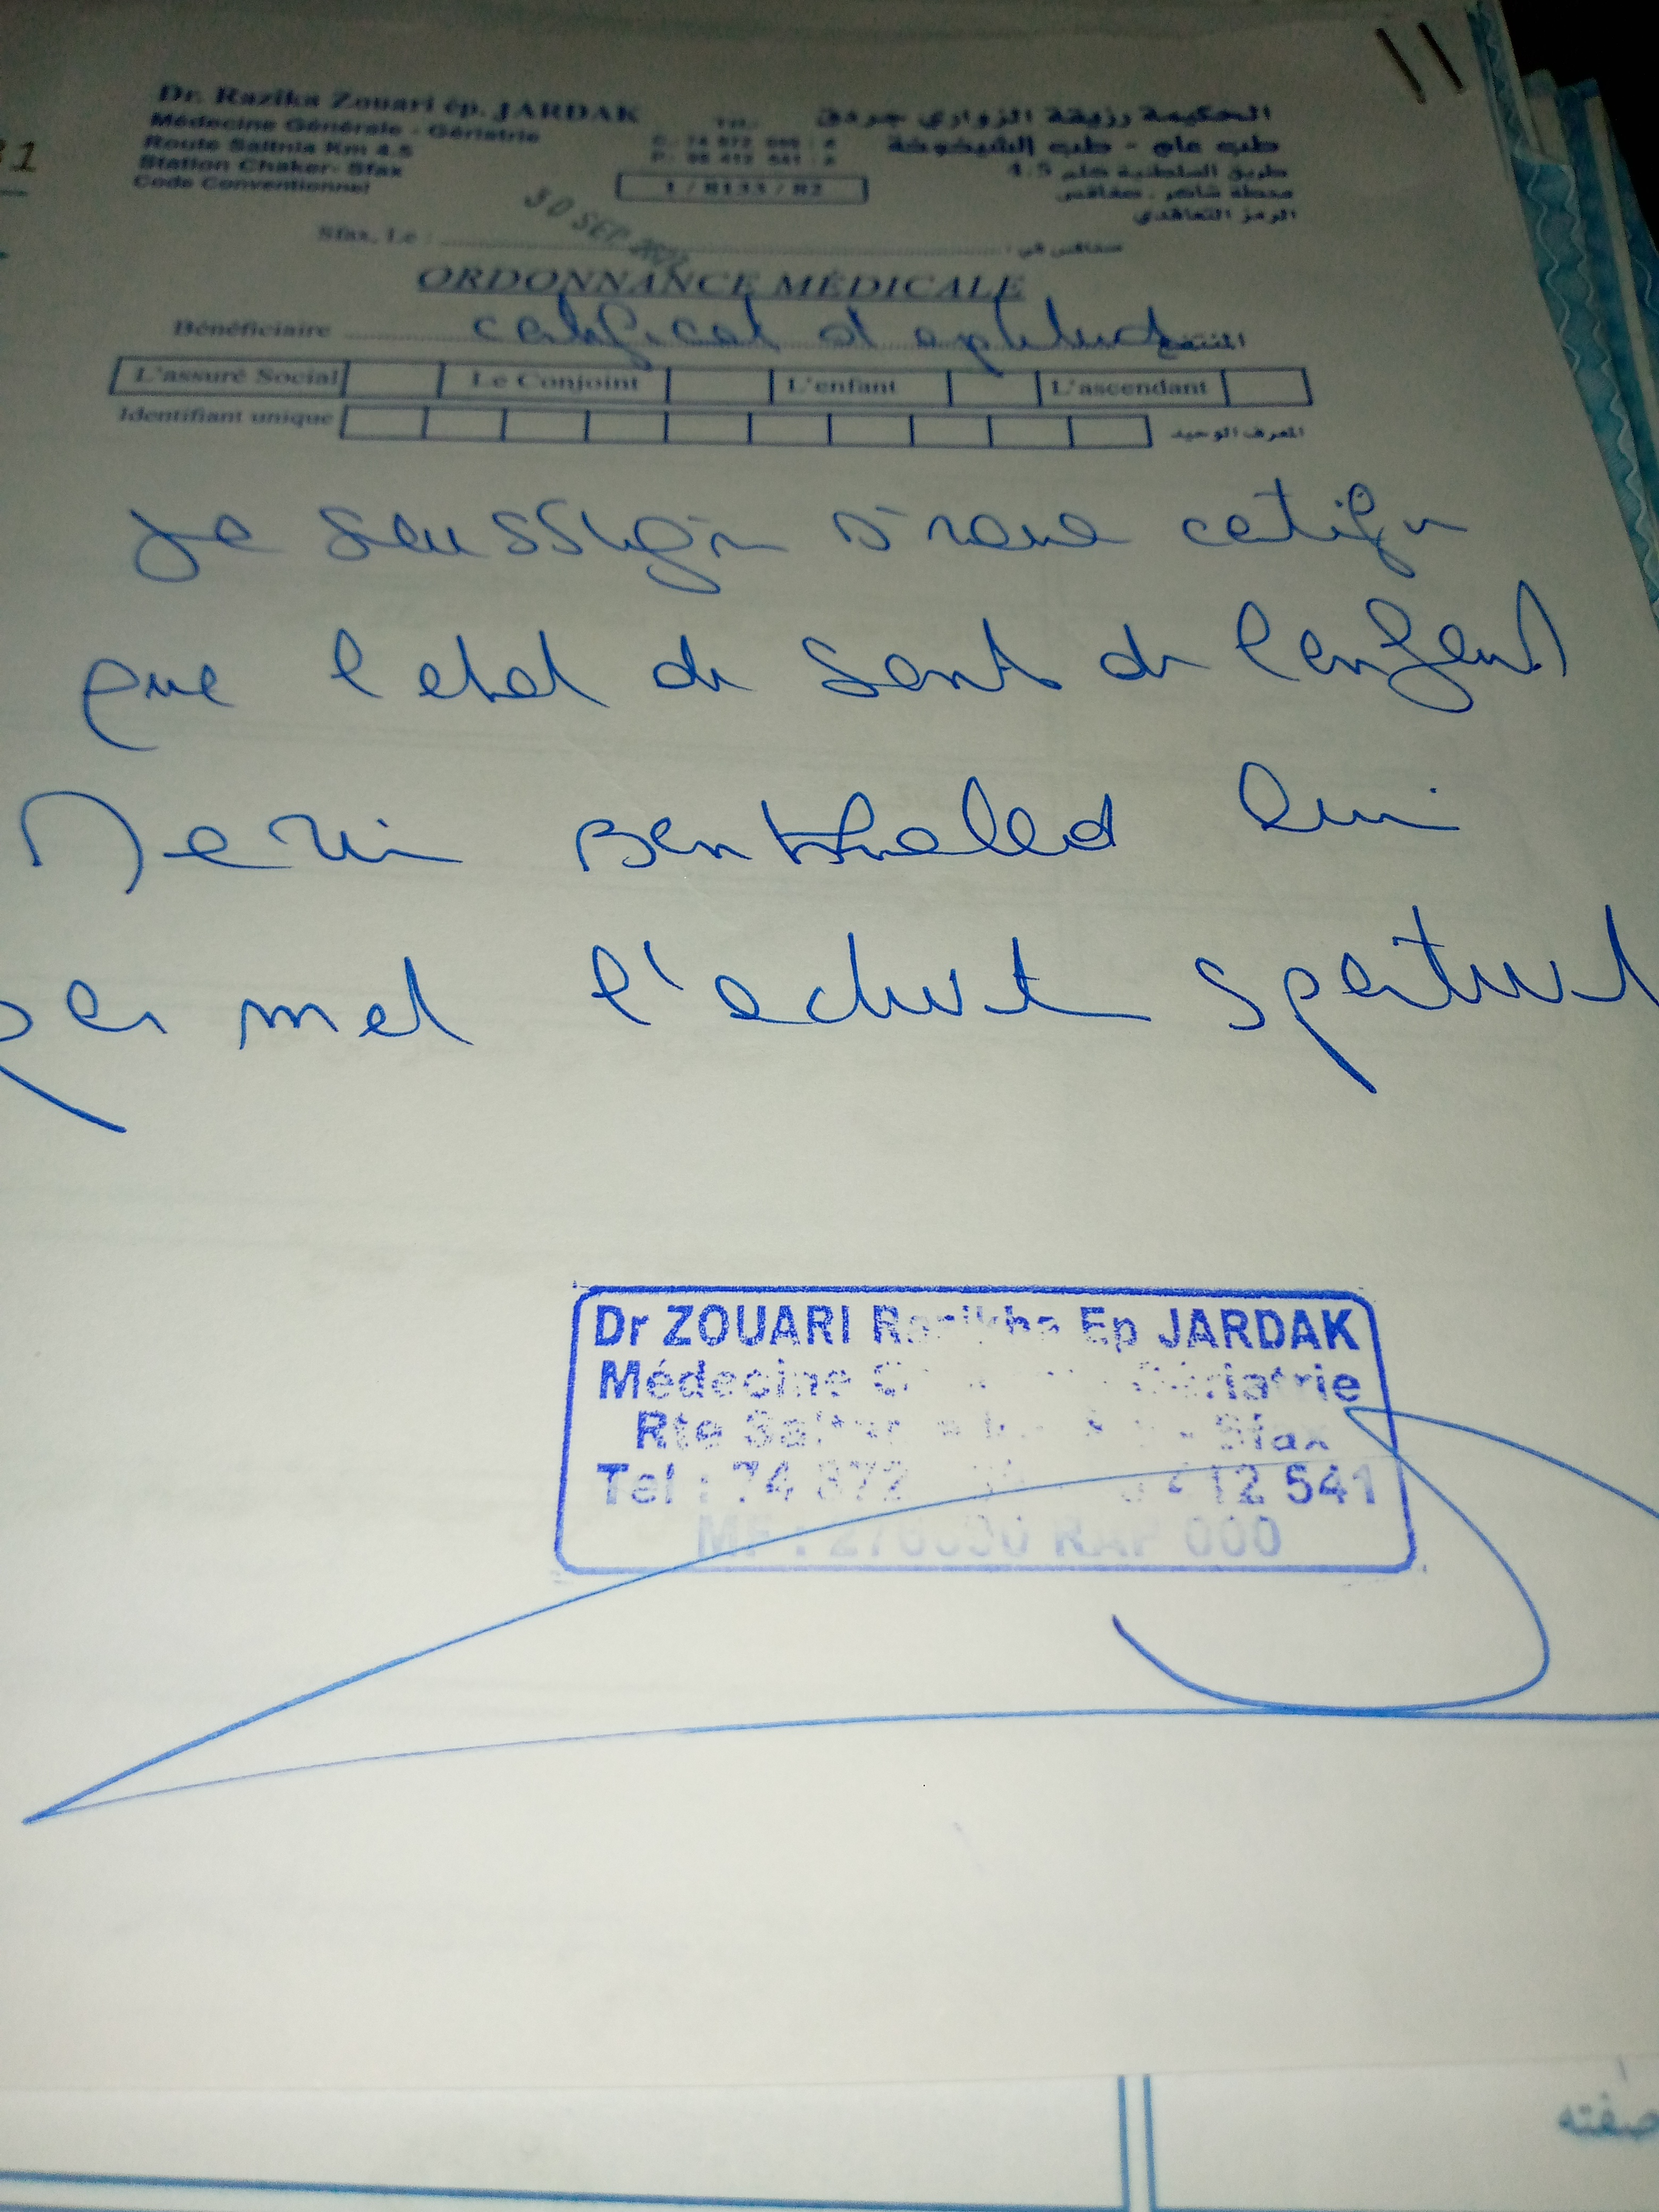 31
Dr. Razika Zouari ép. JARDAK
Médecine Générale - Gériatrie
Route Saltnia Km 4.5
Station Chaker- Sfax
Code Conventionnel
1 / 8133 / 82
الحكيمة رزيقة الزواري جردق
طب عام - طب الشيخوخة
طريق السلطنية كلم 4.5
محطة شاكر . صفاقس
الرمز التعاقدي
Sfax, Le : صفاقس في :
30 SEP
ORDONNANCE MÉDICALE
Bénéficiaire certificat d'aptitude المنتفع
L'assuré Social Le Conjoint L'enfant L'ascendant
Identifiant unique المعرف الوحيد
Je certifie
que l'etat de santé de l'enfant
Ben Khaled lui
permet l'activité sportive
Dr ZOUARI Ep JARDAK
Médecine Gériatrie
Rte Sfax
Tel : 74 872 412 541
000
صفته